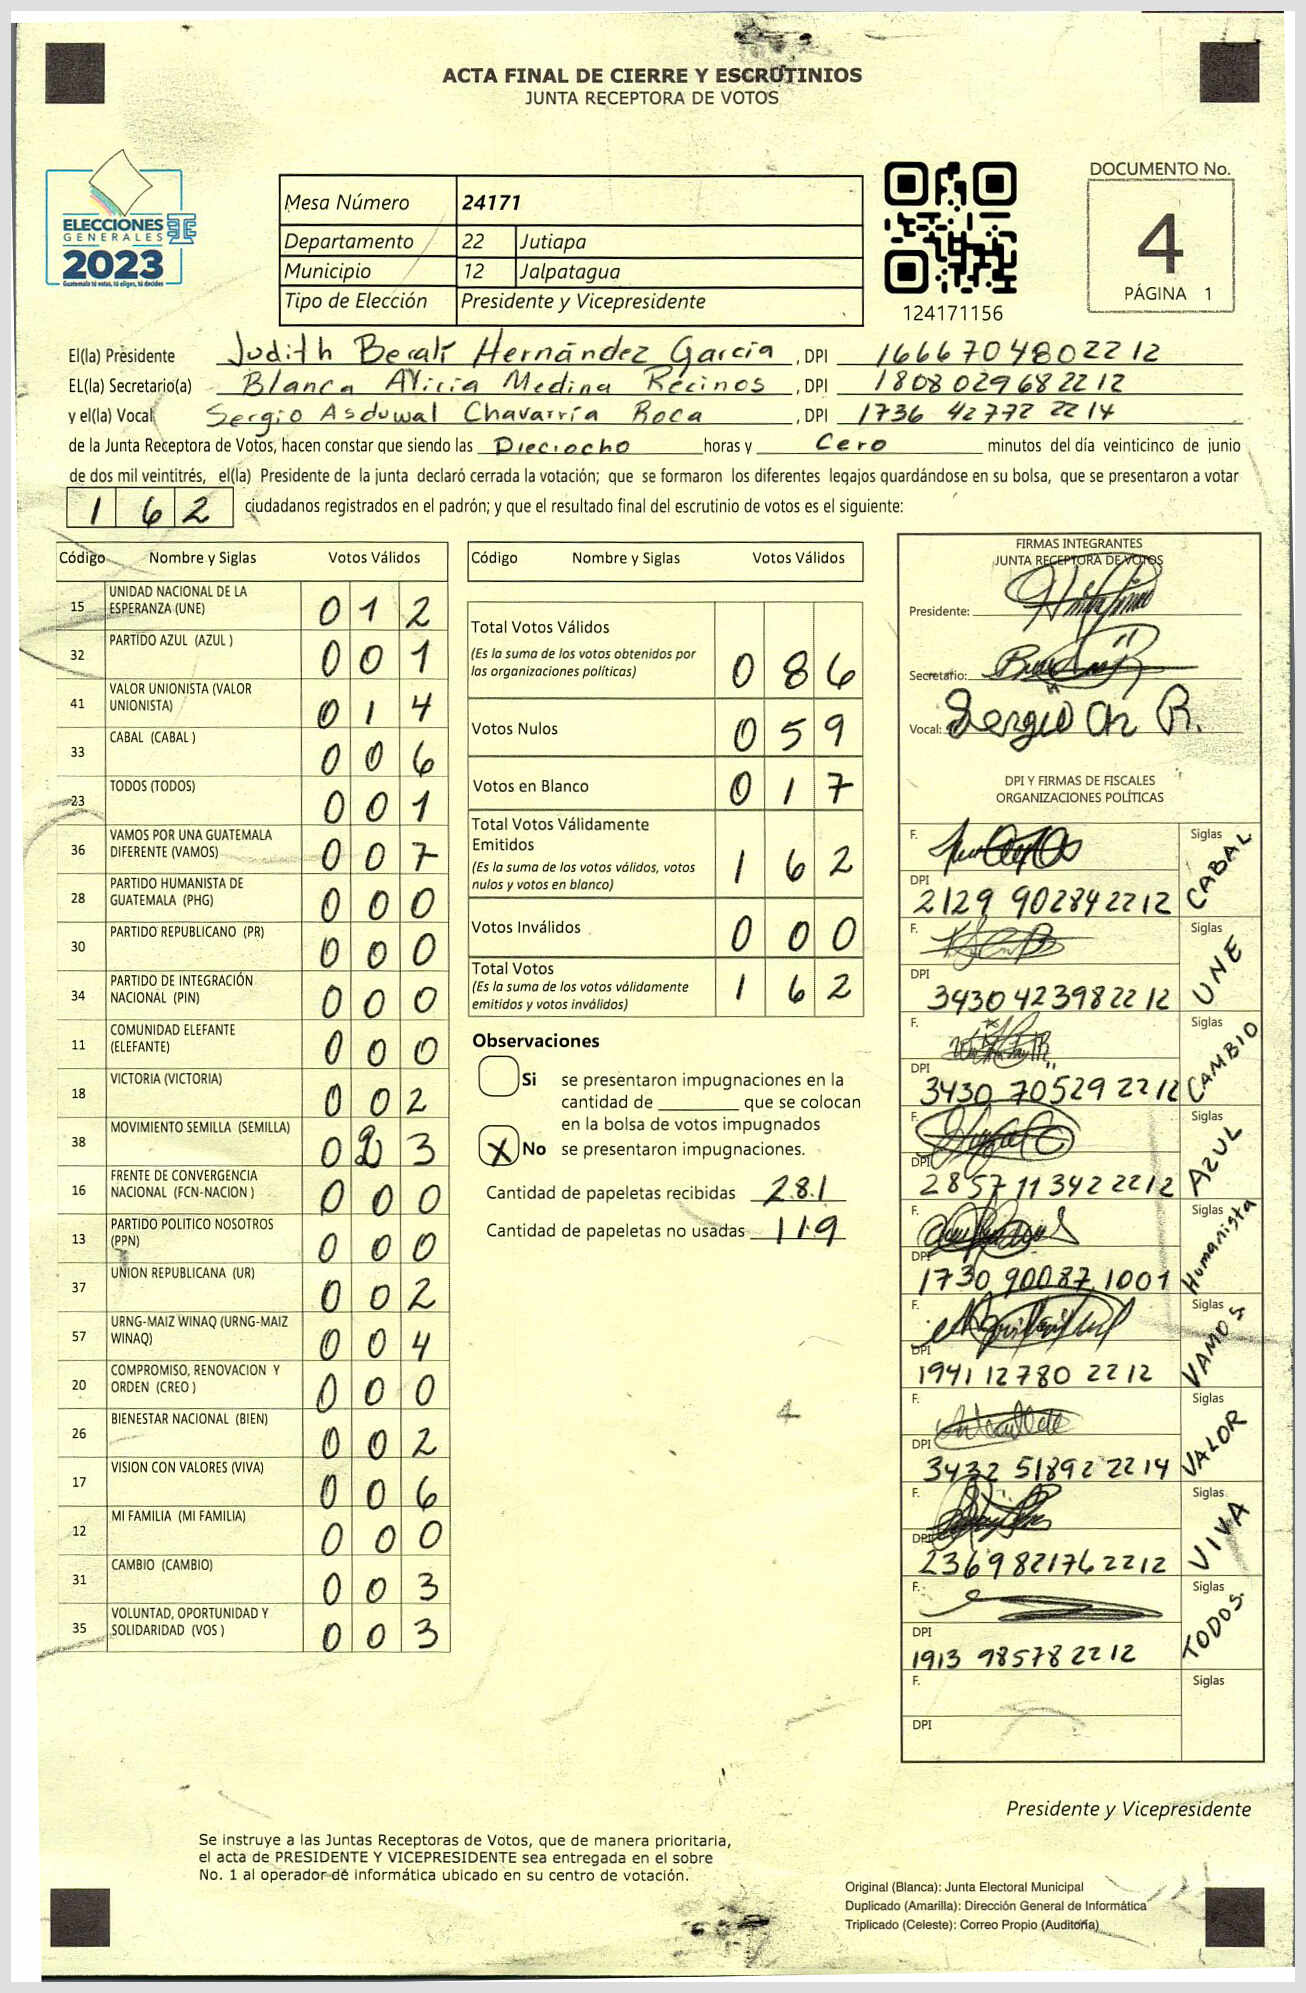 ACTA FINAL DE CIERRE Y ESCRUTINIOS
JUNTA RECEPTORA DE VOTOS
ELECCIONES
GENERALES
2023
Guatemala tú votas, tú eliges, tú decides
Mesa Número 24171
Departamento 22 Jutiapa
Municipio 12 Jalpatagua
Tipo de Elección Presidente y Vicepresidente
124171156
DOCUMENTO No.
4
PÁGINA 1
El(la) Presidente Judith Beralí Hernández García , DPI 1666704802212
EL(la) Secretario(a) Blanca Alicia Medina Recinos , DPI 1808029682212
y el(la) Vocal Sergio Asduwal Chavarría Roca , DPI 1736 42772 2214
de la Junta Receptora de Votos, hacen constar que siendo las Dieciocho horas y Cero minutos del día veinticinco de junio
de dos mil veintitrés, el(la) Presidente de la junta declaró cerrada la votación; que se formaron los diferentes legajos quardándose en su bolsa, que se presentaron a votar
1 6 2 ciudadanos registrados en el padrón; y que el resultado final del escrutinio de votos es el siguiente:
Código Nombre y Siglas Votos Válidos
15 UNIDAD NACIONAL DE LA ESPERANZA (UNE) 0 1 2
32 PARTIDO AZUL (AZUL ) 0 0 1
41 VALOR UNIONISTA (VALOR UNIONISTA) 0 1 4
33 CABAL (CABAL ) 0 0 6
23 TODOS (TODOS) 0 0 1
36 VAMOS POR UNA GUATEMALA DIFERENTE (VAMOS) 0 0 7
28 PARTIDO HUMANISTA DE GUATEMALA (PHG) 0 0 0
30 PARTIDO REPUBLICANO (PR) 0 0 0
34 PARTIDO DE INTEGRACIÓN NACIONAL (PIN) 0 0 0
11 COMUNIDAD ELEFANTE (ELEFANTE) 0 0 0
18 VICTORIA (VICTORIA) 0 0 2
38 MOVIMIENTO SEMILLA (SEMILLA) 0 2 3
16 FRENTE DE CONVERGENCIA NACIONAL (FCN-NACION ) 0 0 0
13 PARTIDO POLITICO NOSOTROS (PPN) 0 0 0
37 UNION REPUBLICANA (UR) 0 0 2
57 URNG-MAIZ WINAQ (URNG-MAIZ WINAQ) 0 0 4
20 COMPROMISO, RENOVACION Y ORDEN (CREO ) 0 0 0
26 BIENESTAR NACIONAL (BIEN) 0 0 2
17 VISION CON VALORES (VIVA) 0 0 6
12 MI FAMILIA (MI FAMILIA) 0 0 0
31 CAMBIO (CAMBIO) 0 0 3
35 VOLUNTAD, OPORTUNIDAD Y SOLIDARIDAD (VOS ) 0 0 3
Código Nombre y Siglas Votos Válidos
Total Votos Válidos 0 8 6
(Es la suma de los votos obtenidos por
las organizaciones políticas)
Votos Nulos 0 5 9
Votos en Blanco 0 1 7
Total Votos Válidamente
Emitidos 1 6 2
(Es la suma de los votos válidos, votos
nulos y votos en blanco)
Votos Inválidos 0 0 0
Total Votos 1 6 2
(Es la suma de los votos válidamente
emitidos y votos inválidos)
Observaciones
Si se presentaron impugnaciones en la
cantidad de ________ que se colocan
en la bolsa de votos impugnados
X No se presentaron impugnaciones.
Cantidad de papeletas recibidas 281
Cantidad de papeletas no usadas 119
FIRMAS INTEGRANTES
JUNTA RECEPTORA DE VOTOS
Presidente:
Secretario:
Vocal: Sergio Ch R.
DPI Y FIRMAS DE FISCALES
ORGANIZACIONES POLÍTICAS
F. Siglas CABAL
DPI 2129 90284 2212
F. Siglas UNE
DPI 3430 42398 2212
F. Siglas CAMBIO
DPI 3430 70529 2212
F. Siglas AZUL
DPI 2857 11342 2212
F. Siglas Humanista
DPI 1730 90087 1001
F. Siglas VAMOS
DPI 1941 12780 2212
F. Siglas VALOR
DPI 3432 51892 2214
F. Siglas VIVA
DPI 2369 82176 2212
F. Siglas TODOS.
DPI 1913 98578 2212
F. Siglas
DPI
Presidente y Vicepresidente
Se instruye a las Juntas Receptoras de Votos, que de manera prioritaria,
el acta de PRESIDENTE Y VICEPRESIDENTE sea entregada en el sobre
No. 1 al operador de informática ubicado en su centro de votación.
Original (Blanca): Junta Electoral Municipal
Duplicado (Amarilla): Dirección General de Informática
Triplicado (Celeste): Correo Propio (Auditoría)